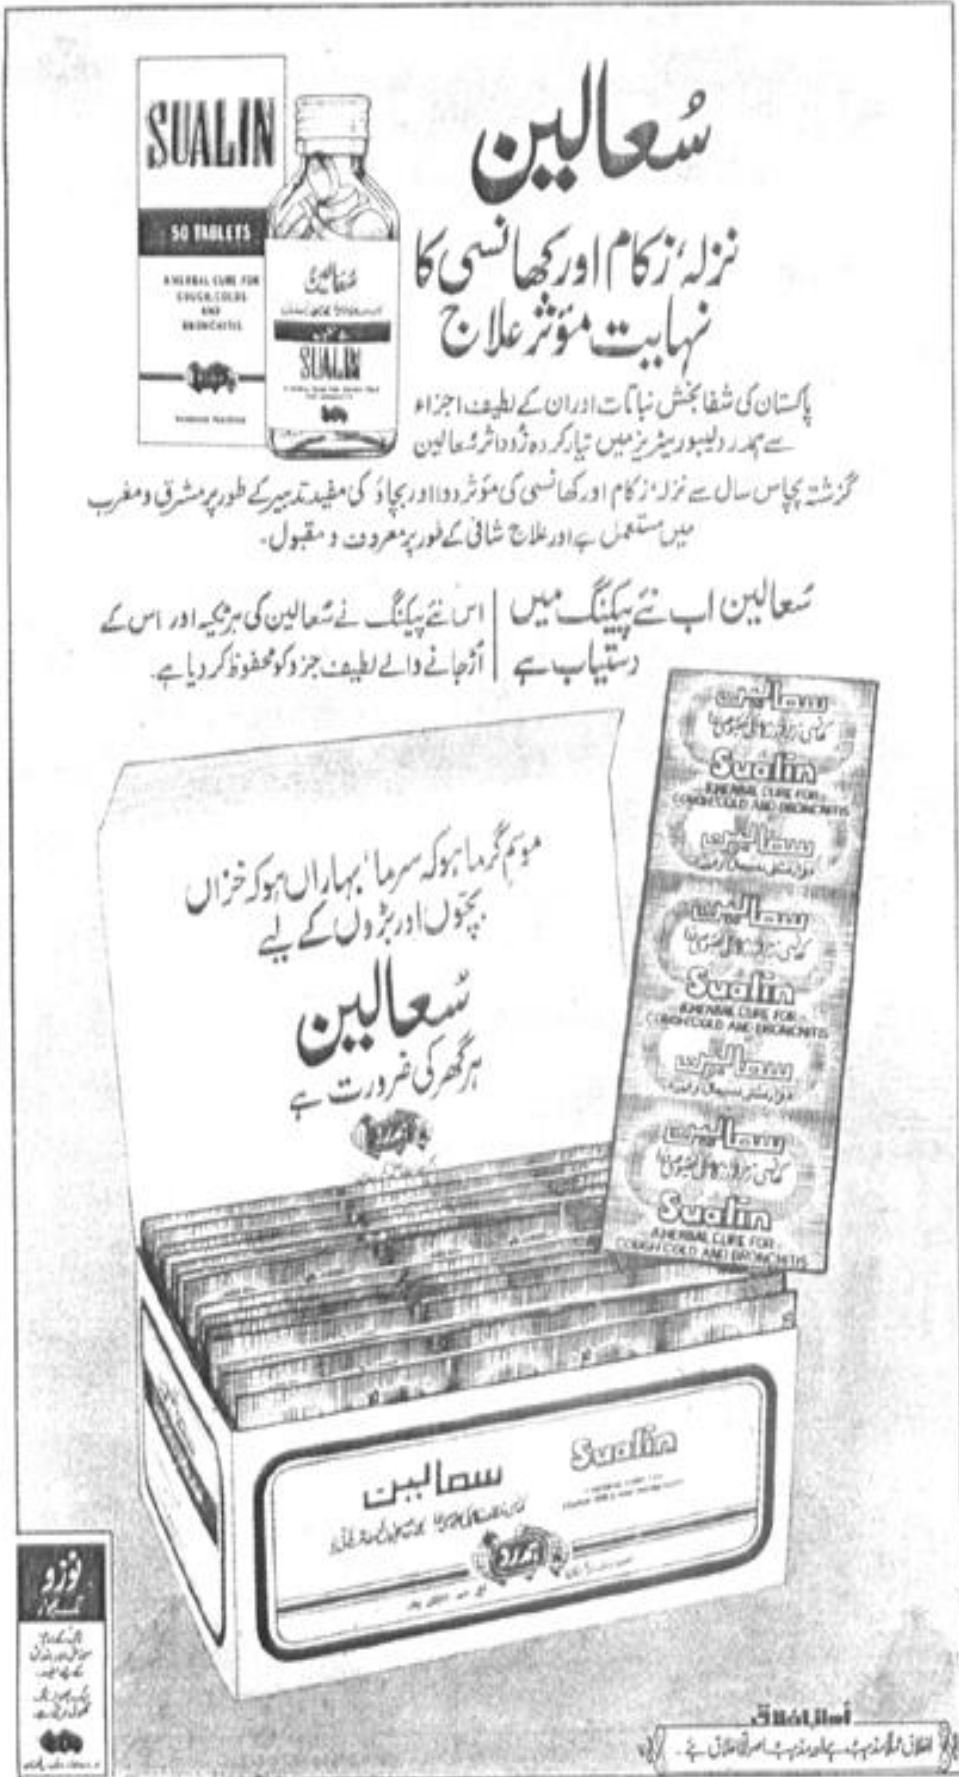 SUALIN
50 TABLETS
A HERBAL CURE FOR
COUGH, COLDS
AND
BRONCHITIS
سُعالین
SUALIN
سُعالین
نزلہ، زکام اور کھانسی کا
نہایت مؤثر علاج
پاکستان کی شفابخش نباتات اور ان کے لطیف اجزاء
سے ہمدرد لیبوریٹریز میں تیار کردہ زُود اثر سُعالین
گزشتہ پچاس سال سے نزلہ، زکام اور کھانسی کی مؤثر دوا اور بچاؤ کی مفید تدبیر کے طور پر مشرق و مغرب
میں مستعمل ہے اور علاج شافی کے طور پر معروف و مقبول۔
سُعالین اب نئے پیکنگ میں
دستیاب ہے
اس نئے پیکنگ نے سُعالین کی ہر ٹکیہ اور اس کے
اُڑجانے والے لطیف جزو کو محفوظ کر دیا ہے۔
سعالین
Sualin
A HERBAL CURE FOR
COUGH COLD AND BRONCHITIS
سعالین
سعالین
Sualin
A HERBAL CURE FOR
COUGH COLD AND BRONCHITIS
سعالین
سعالین
Sualin
A HERBAL CURE FOR
COUGH COLD AND BRONCHITIS
موسم گرما ہو کہ سرما، بہاراں ہو کہ خزاں
بچّوں اور بڑوں کے لیے
سُعالین
ہر گھر کی ضرورت ہے
ہمدرد
سعالین
Sualin
ہمدرد
آواز اخلاق